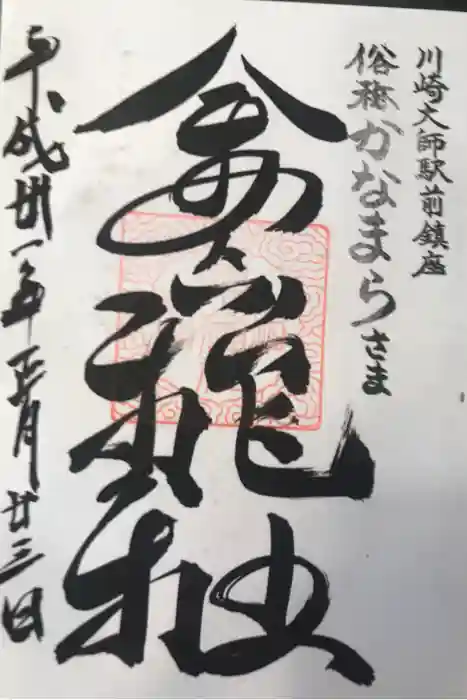 川崎大師駅前鎮座
俗称かなまらさま
金山神社
平成卅一年正月廿三日